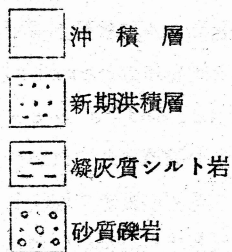 沖積層
新期洪積層
凝灰質シルト岩
砂質礫岩